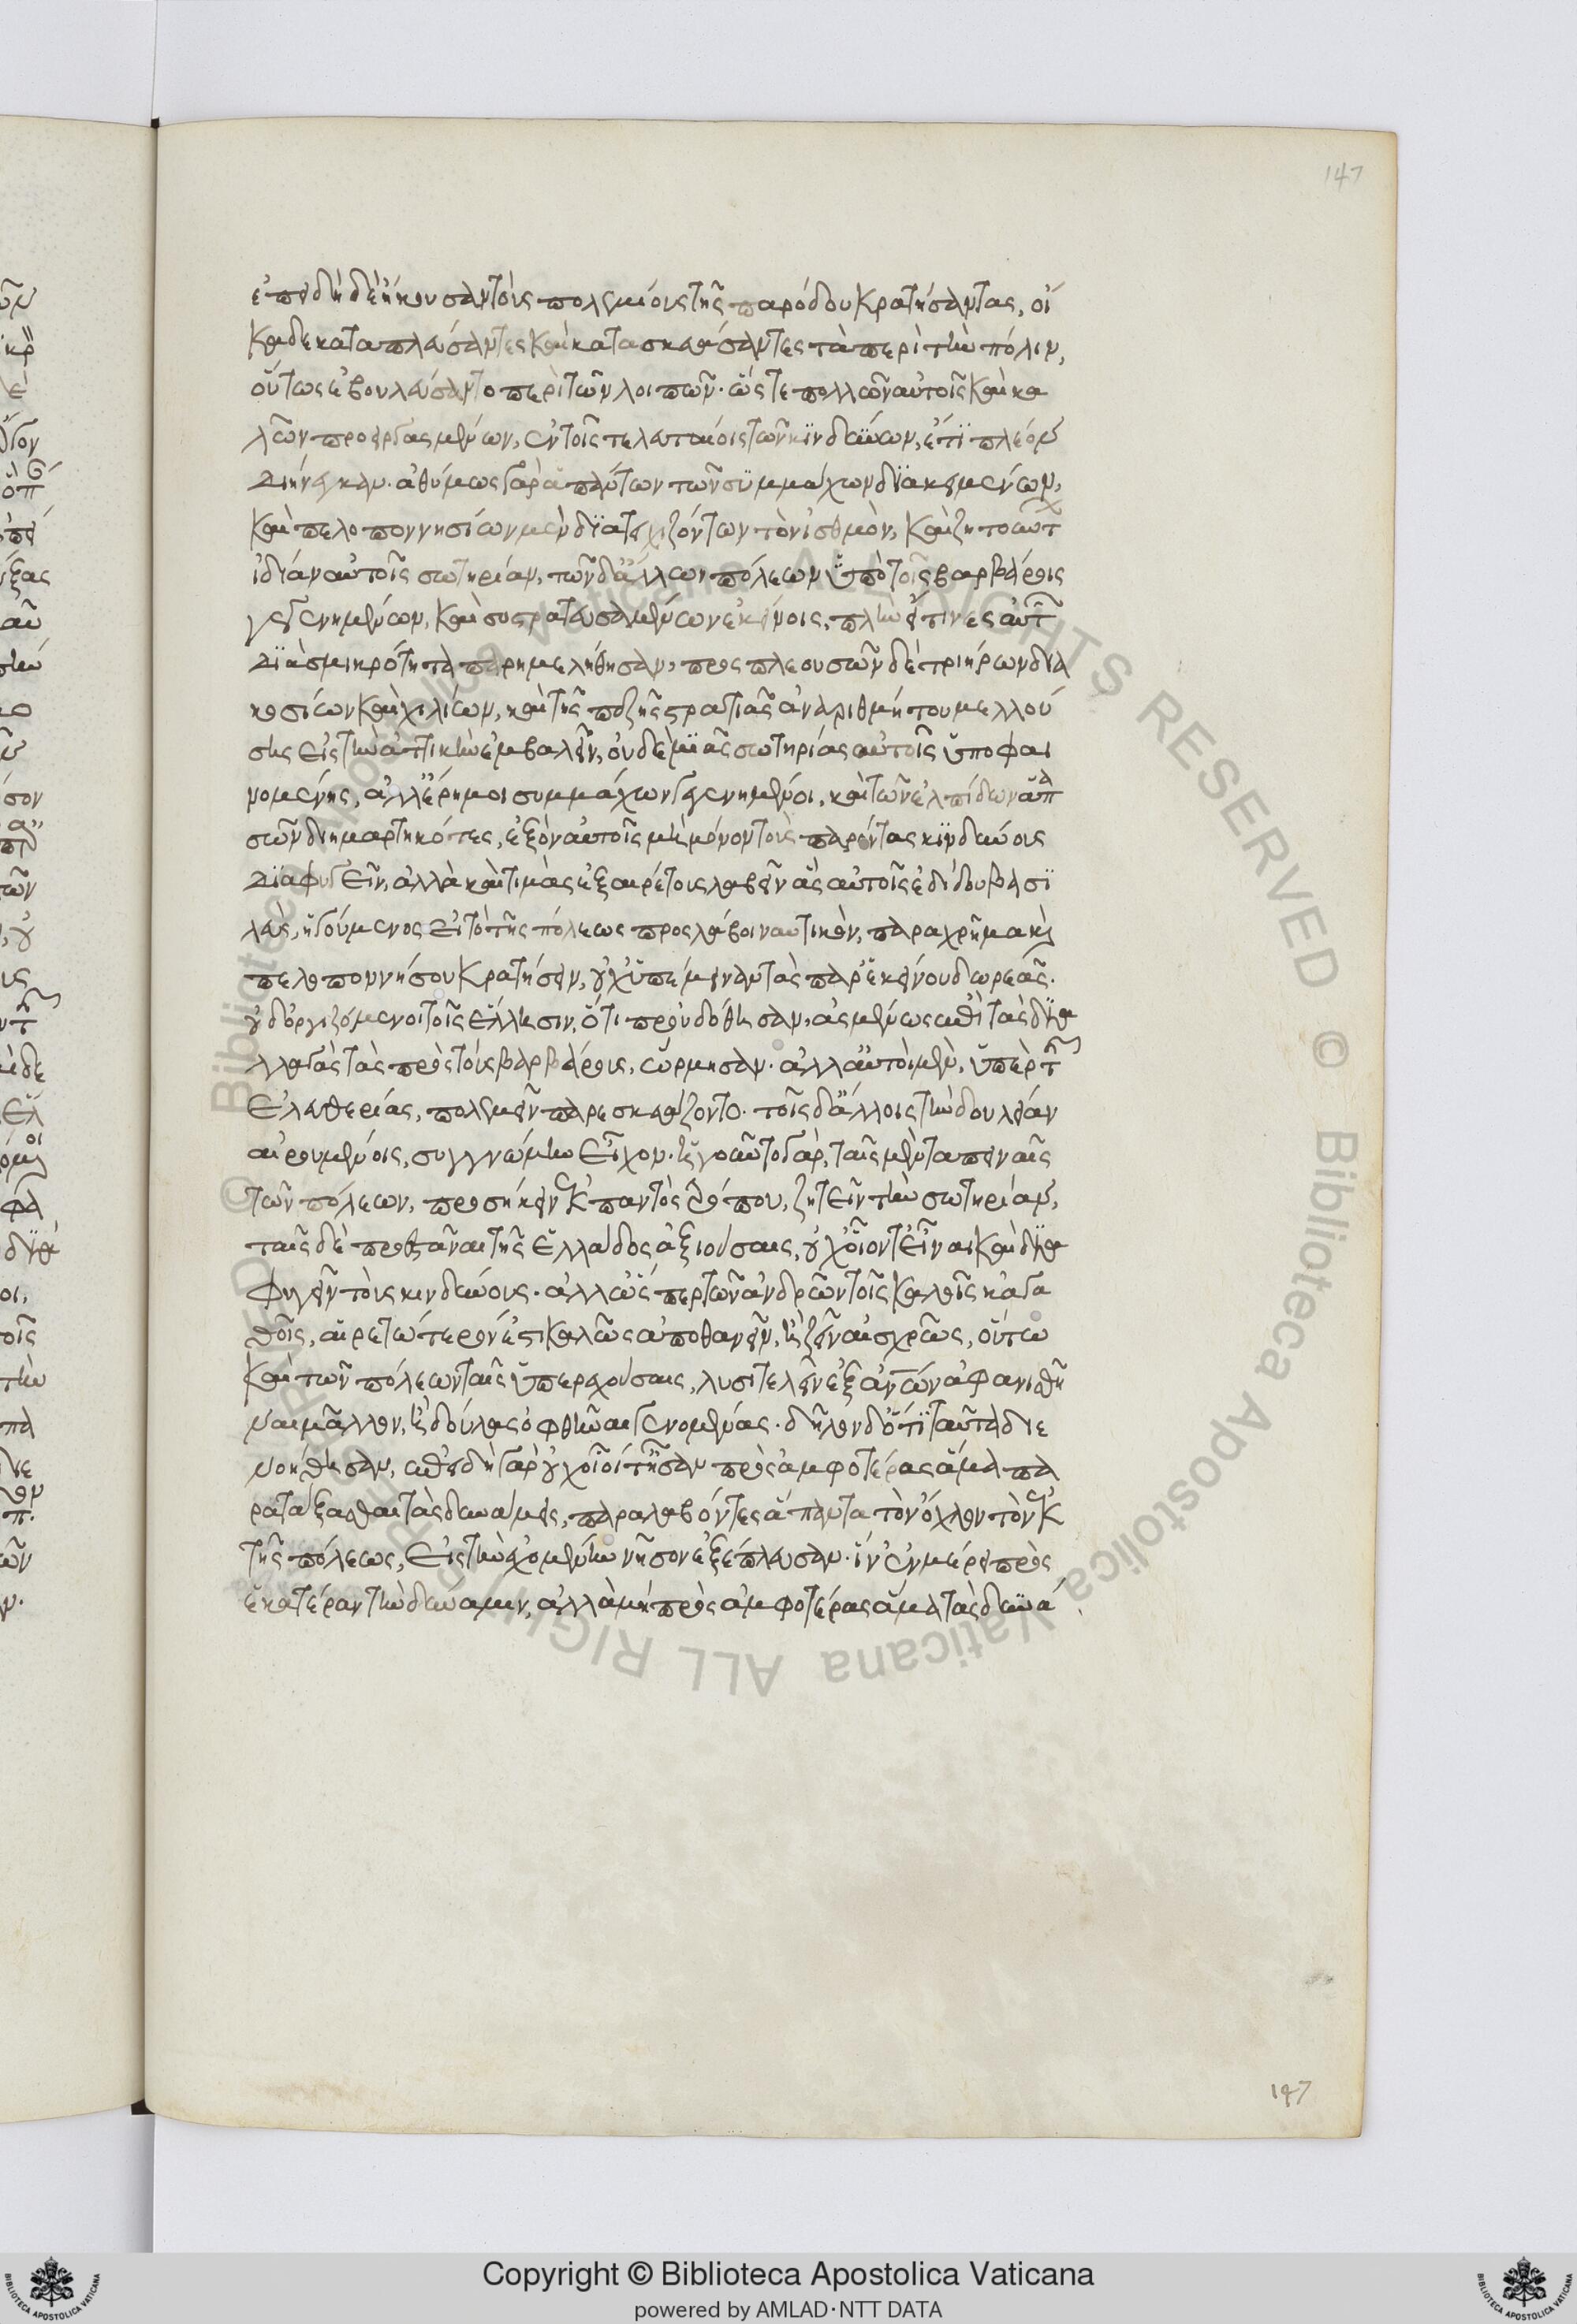 147
ἐπειδὴ δὲ ἤκουσαν τοὺς πολεμίους τῆς παρόδου κρατήσαντας, οἴ
καδε καταπλεύσαντες καὶ κατασκευάσαντες τὰ περὶ τὴν πόλιν,
οὕτως ἐβουλεύσαντο περὶ τῶν λοιπῶν· ὥστε πολλῶν αὐτοῖς καὶ κα
λῶν προειργασμένων, ἐν τοῖς τελευταίοις τῶν κινδύνων, ἔτι πλέον
διήνεγκαν. ἀθύμως γὰρ ἁπάντων τῶν συμμάχων διακειμένων,
καὶ πελοποννησίων μὲν διατειχιζόντων τὸν ἰσθμὸν, καὶ ζητούντ
ἰδίαν αὐτοῖς σωτηρίαν, τῶν δ' ἄλλων πόλεων ὑπὸ τοῖς βαρβάροις
γεγενημένων, καὶ συστρατευσαμένων ἐκείνοις, πλὴν εἴ τινες αὐτ
διὰ σμικρότητα παρημελήθησαν, προσπλεουσῶν δὲ τριήρων δια
κοσίων καὶ χιλίων, καὶ τῆς πεζῆς στρατιᾶς ἀναριθμήτου μελλού
σης εἰς τὴν ἀττικὴν ἐμβαλεῖν, οὐδεμιᾶς σωτηρίας αὐτοῖς ὑποφαι
νομένης, ἀλλ' ἔρημοι συμμάχων γεγενημένοι, καὶ τῶν ἐλπίδων ἁπα
σῶν διημαρτηκότες, ἐξὸν αὐτοῖς μὴ μόνον τοὺς παρόντας κινδύνους
διαφυγεῖν, ἀλλὰ καὶ τιμὰς ἐξαιρέτους λαβεῖν ἃς αὐτοῖς ἐδίδου βασι
λεὺς, ἡγούμενος εἰ τὸ τῆς πόλεως προσλάβοι ναυτικὸν, παραχρῆμα καὶ
πελοποννήσου κρατήσειν, οὐχ ὑπέμειναν τὰς παρ' ἐκείνου δωρεάς.
οὐδ' ὀργιζόμενοι τοῖς ἕλλησιν, ὅτι προὐδόθησαν, ἀσμένως ἐπὶ τὰς δια
λλαγὰς τὰς πρὸς τοὺς βαρβάρους, ὥρμησαν. ἀλλ' αὐτοὶ μὲν, ὑπὲρ τῆς
ἐλευθερίας, πολεμεῖν παρεσκευάζοντο. τοῖς δ' ἄλλοις τὴν δουλείαν
αἱρουμένοις, συγγνώμην εἶχον. ἡγοῦντο γὰρ, ταῖς μὲν ταπειναῖς
τῶν πόλεων, προσήκειν ἐκ παντὸς τρόπου, ζητεῖν τὴν σωτηρίαν,
ταῖς δὲ προεστάναι τῆς ἑλλάδος ἀξιούσαις, οὐχ οἷόντ' εἶναι καὶ δια
φυγεῖν τοὺς κινδύνους. ἀλλ' ὥσπερ τῶν ἀνδρῶν τοῖς καλοῖς κἀγα
θοῖς, αἱρετώτερόν ἐστι καλῶς ἀποθανεῖν, ἢ ζῆν αἰσχρῶς, οὕτω
καὶ τῶν πόλεων ταῖς ὑπερεχούσαις, λυσιτελεῖν ἐξ ἀνων ἀφανισθῆ
ναι μᾶλλον, ἢ δούλας ὀφθῆναι γενομένας. δῆλον δ' ὅτι ταῦτα διε
νοήθησαν, ἐπειδὴ γὰρ οὐχ οἷοί τ' ἦσαν πρὸς ἀμφοτέρας ἅμα πα
ρατάξασθαι τὰς δυνάμεις, παραλαβόντες ἅπαντα τὸν ὄχλον τὸν ἐκ
τῆς πόλεως, εἰς τὴν ἐχομένην νῆσον ἐξέπλευσαν. ἵν' ἐν μέρει πρὸς
ἑκατέραν τὴν δύναμιν, ἀλλὰ μὴ πρὸς ἀμφοτέρας ἅμα τὰς δυνά
147
© Biblioteca Apostolica Vaticana ALL RIGHTS RESERVED
Copyright © Biblioteca Apostolica Vaticana
powered by AMLAD·NTT DATA